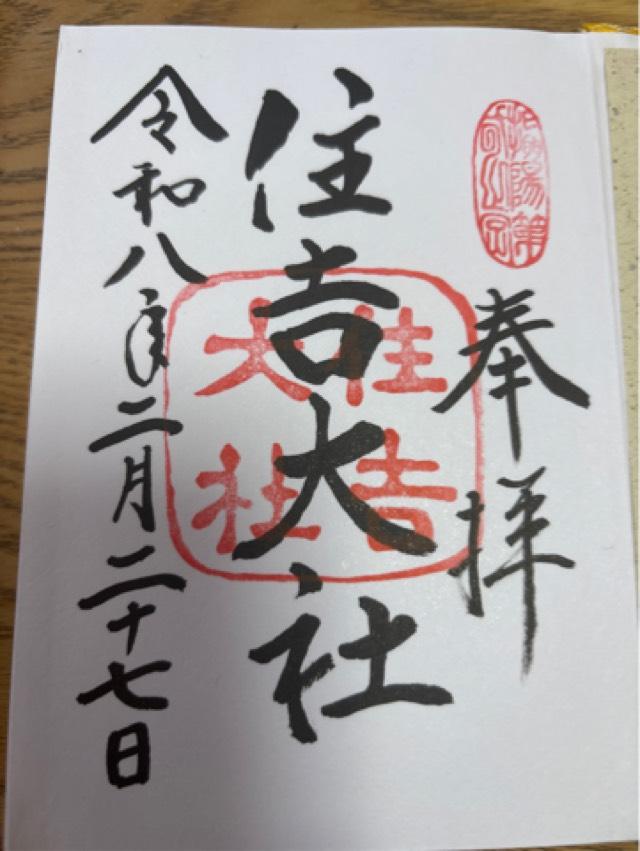 奉拝
住吉大社
住吉
大社
令和八年二月二十七日